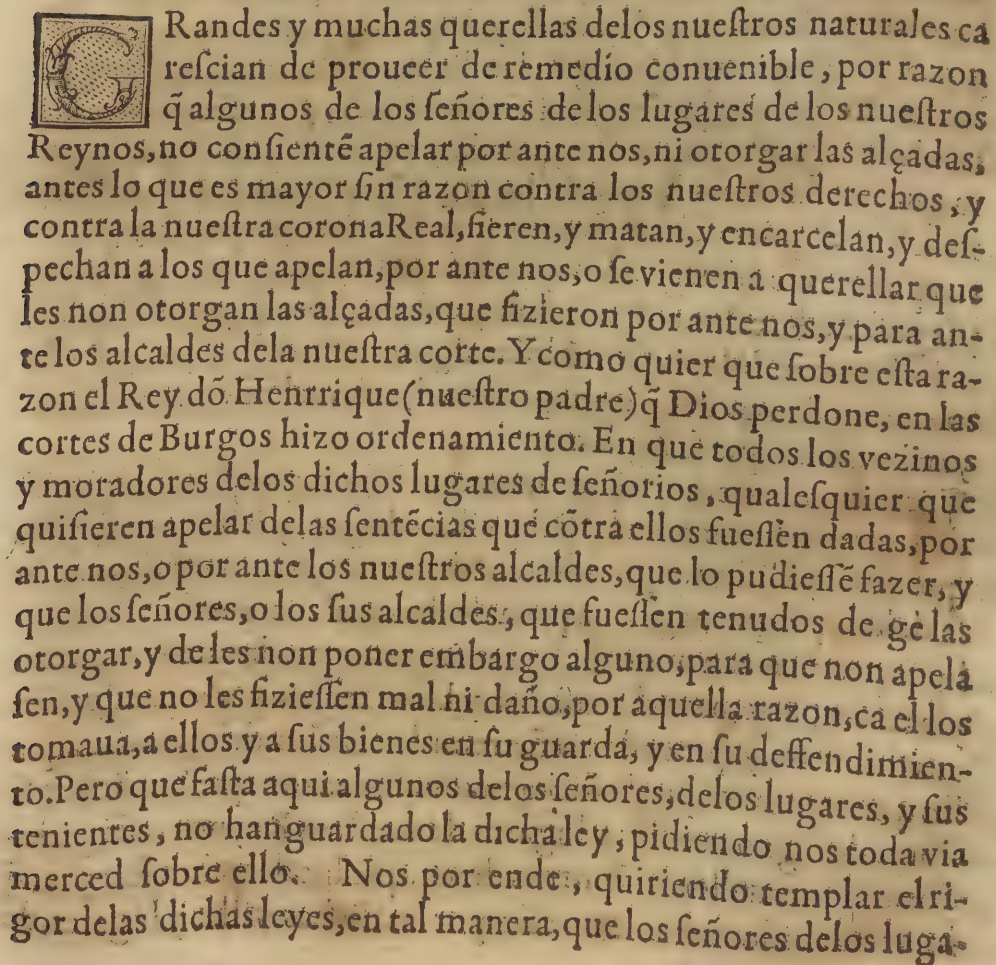 GRandes y muchas querellas delos nueſtros naturales ca
reſcian de proueer de remedio conuenible, por razon
q̃ algunos de los ſeñores de los lugares de los nueſtros
Reynos, no conſientẽ apelar por ante nos, ni otorgar las alçadas,
antes lo que es mayor ſin razon contra los nueſtros derechos, y
contra la nueſtra corona Real, fieren, y matan, y encarcelan, y deſ-
pechan a los que apelan, por ante nos, o ſe vienen a querellar que
les non otorgan las alçadas, que fizieron por ante nos, y para an-
te los alcaldes dela nueſtra corte. Y como quier que ſobre eſta ra-
zon el Rey dõ Henrrique (nueſtro padre) q̃ Dios perdone, en las
cortes de Burgos hizo ordenamiento. En que todos los vezinos
y moradores delos dichos lugares de ſeñorios, qualeſquier que
quiſieren apelar delas ſentẽcias que cõtra ellos fueſſen dadas, por
ante nos, o por ante los nueſtros alcaldes, que lo pudieſſẽ fazer, y
que los ſeñores, o los ſus alcaldes, que fueſſen tenudos de ge las
otorgar, y de les non poner embargo alguno, para que non apela
ſen, y que no les fizieſſen mal ni daño, por aquella razon, ca el los
tomaua, a ellos y a ſus bienes en ſu guarda, y en ſu deffendimien-
to. Pero que faſta aqui algunos delos ſeñores, delos lugares, y ſus
tenientes, no han guardado la dicha ley, pidiendo nos toda via
merced ſobre ello. Nos por ende, quiriendo templar el ri-
gor delas dichas leyes, en tal manera, que los ſeñores delos luga-